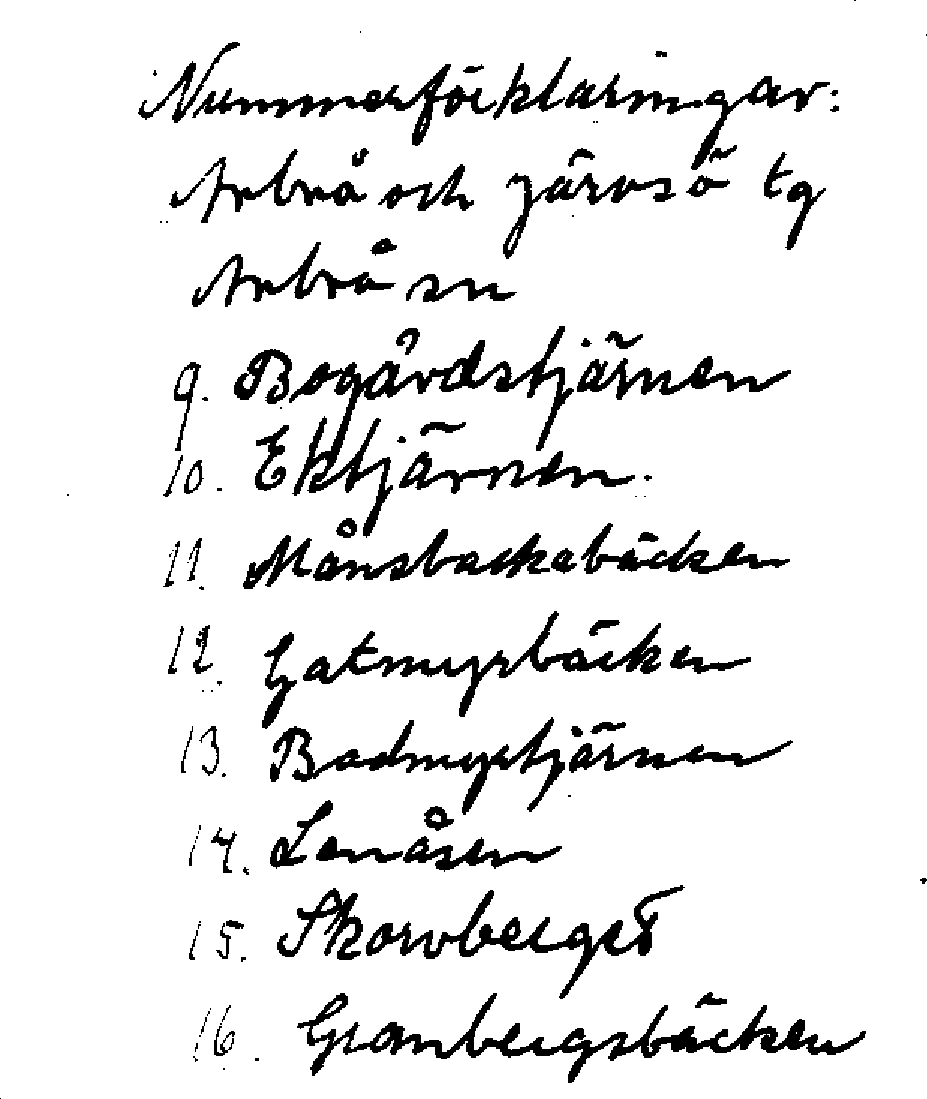 Nummerförklaringar:
Arbrå och Järvsö tg
Arbrå sn
9. Bogårdstjärnen
10. Ektjärnen.
11. Månsbackabäcken
12. Gatmyrbäcken
13. Badmyrtjärnen
14. Lenåsen
15. Skorvberget
16. Granbergsbäcken